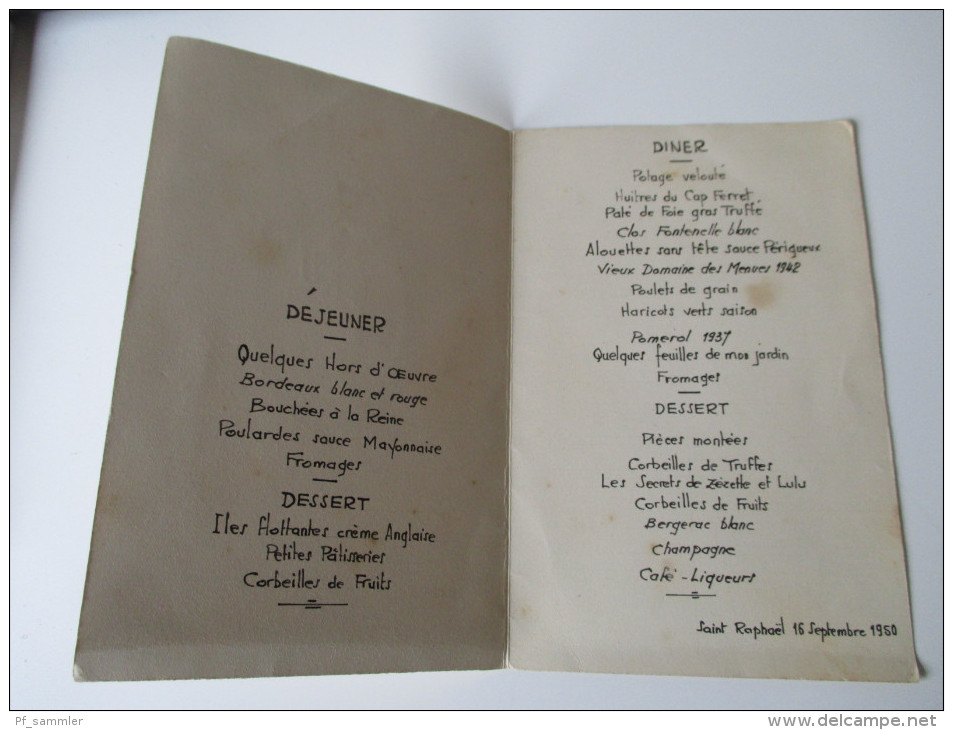 DÉJEUNER
Quelques Hors d'Œuvre
Bordeaux blanc et rouge
Bouchées à la Reine
Poulardes sauce Mayonnaise
Fromages
DESSERT
Iles flottantes crème Anglaise
Petites Pâtisseries
Corbeilles de Fruits
DINER
Potage velouté
Huîtres du Cap Ferret
Paté de Foie gras Truffé
Clos Fontenelle blanc
Alouettes sans tête sauce Périgueux
Vieux Domaine des Menues 1942
Poulets de grain
Haricots verts saison
Pomerol 1937
Quelques feuilles de mon jardin
Fromages
DESSERT
Pièces montées
Corbeilles de Truffes
Les Secrets de Zézette et Lulu
Corbeilles de Fruits
Bergerac blanc
Champagne
Café - Liqueurs
Saint Raphaël 16 Septembre 1950
Pf_sammler
www.delcampe.net